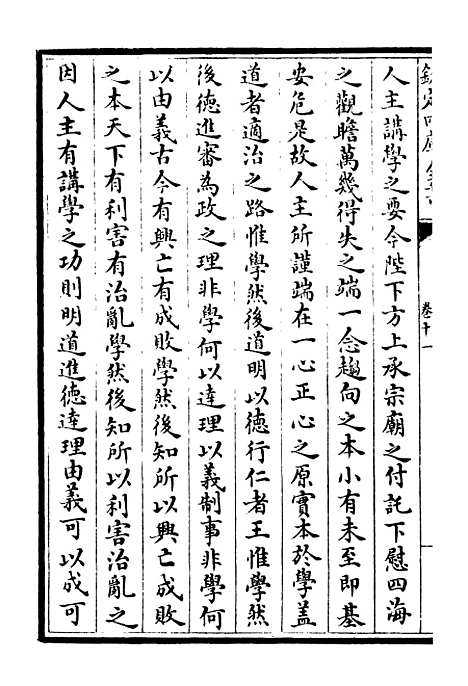 欽定四庫全書
卷十一
人主講學之要今陛下方上承宗廟之付託下慰四海
之觀瞻萬幾得失之端一念趨向之本小有未至即基
安危是故人主所謹端在一心正心之原實本於學蓋
道者適治之路惟學然後道明以德行仁者王惟學然
後德進審為政之理非學何以達理以義制事非學何
以由義古今有興亡有成敗學然後知所以興亡成敗
之本天下有利害有治亂學然後知所以利害治亂之
因人主有講學之功則明道進德達理由義可以成可